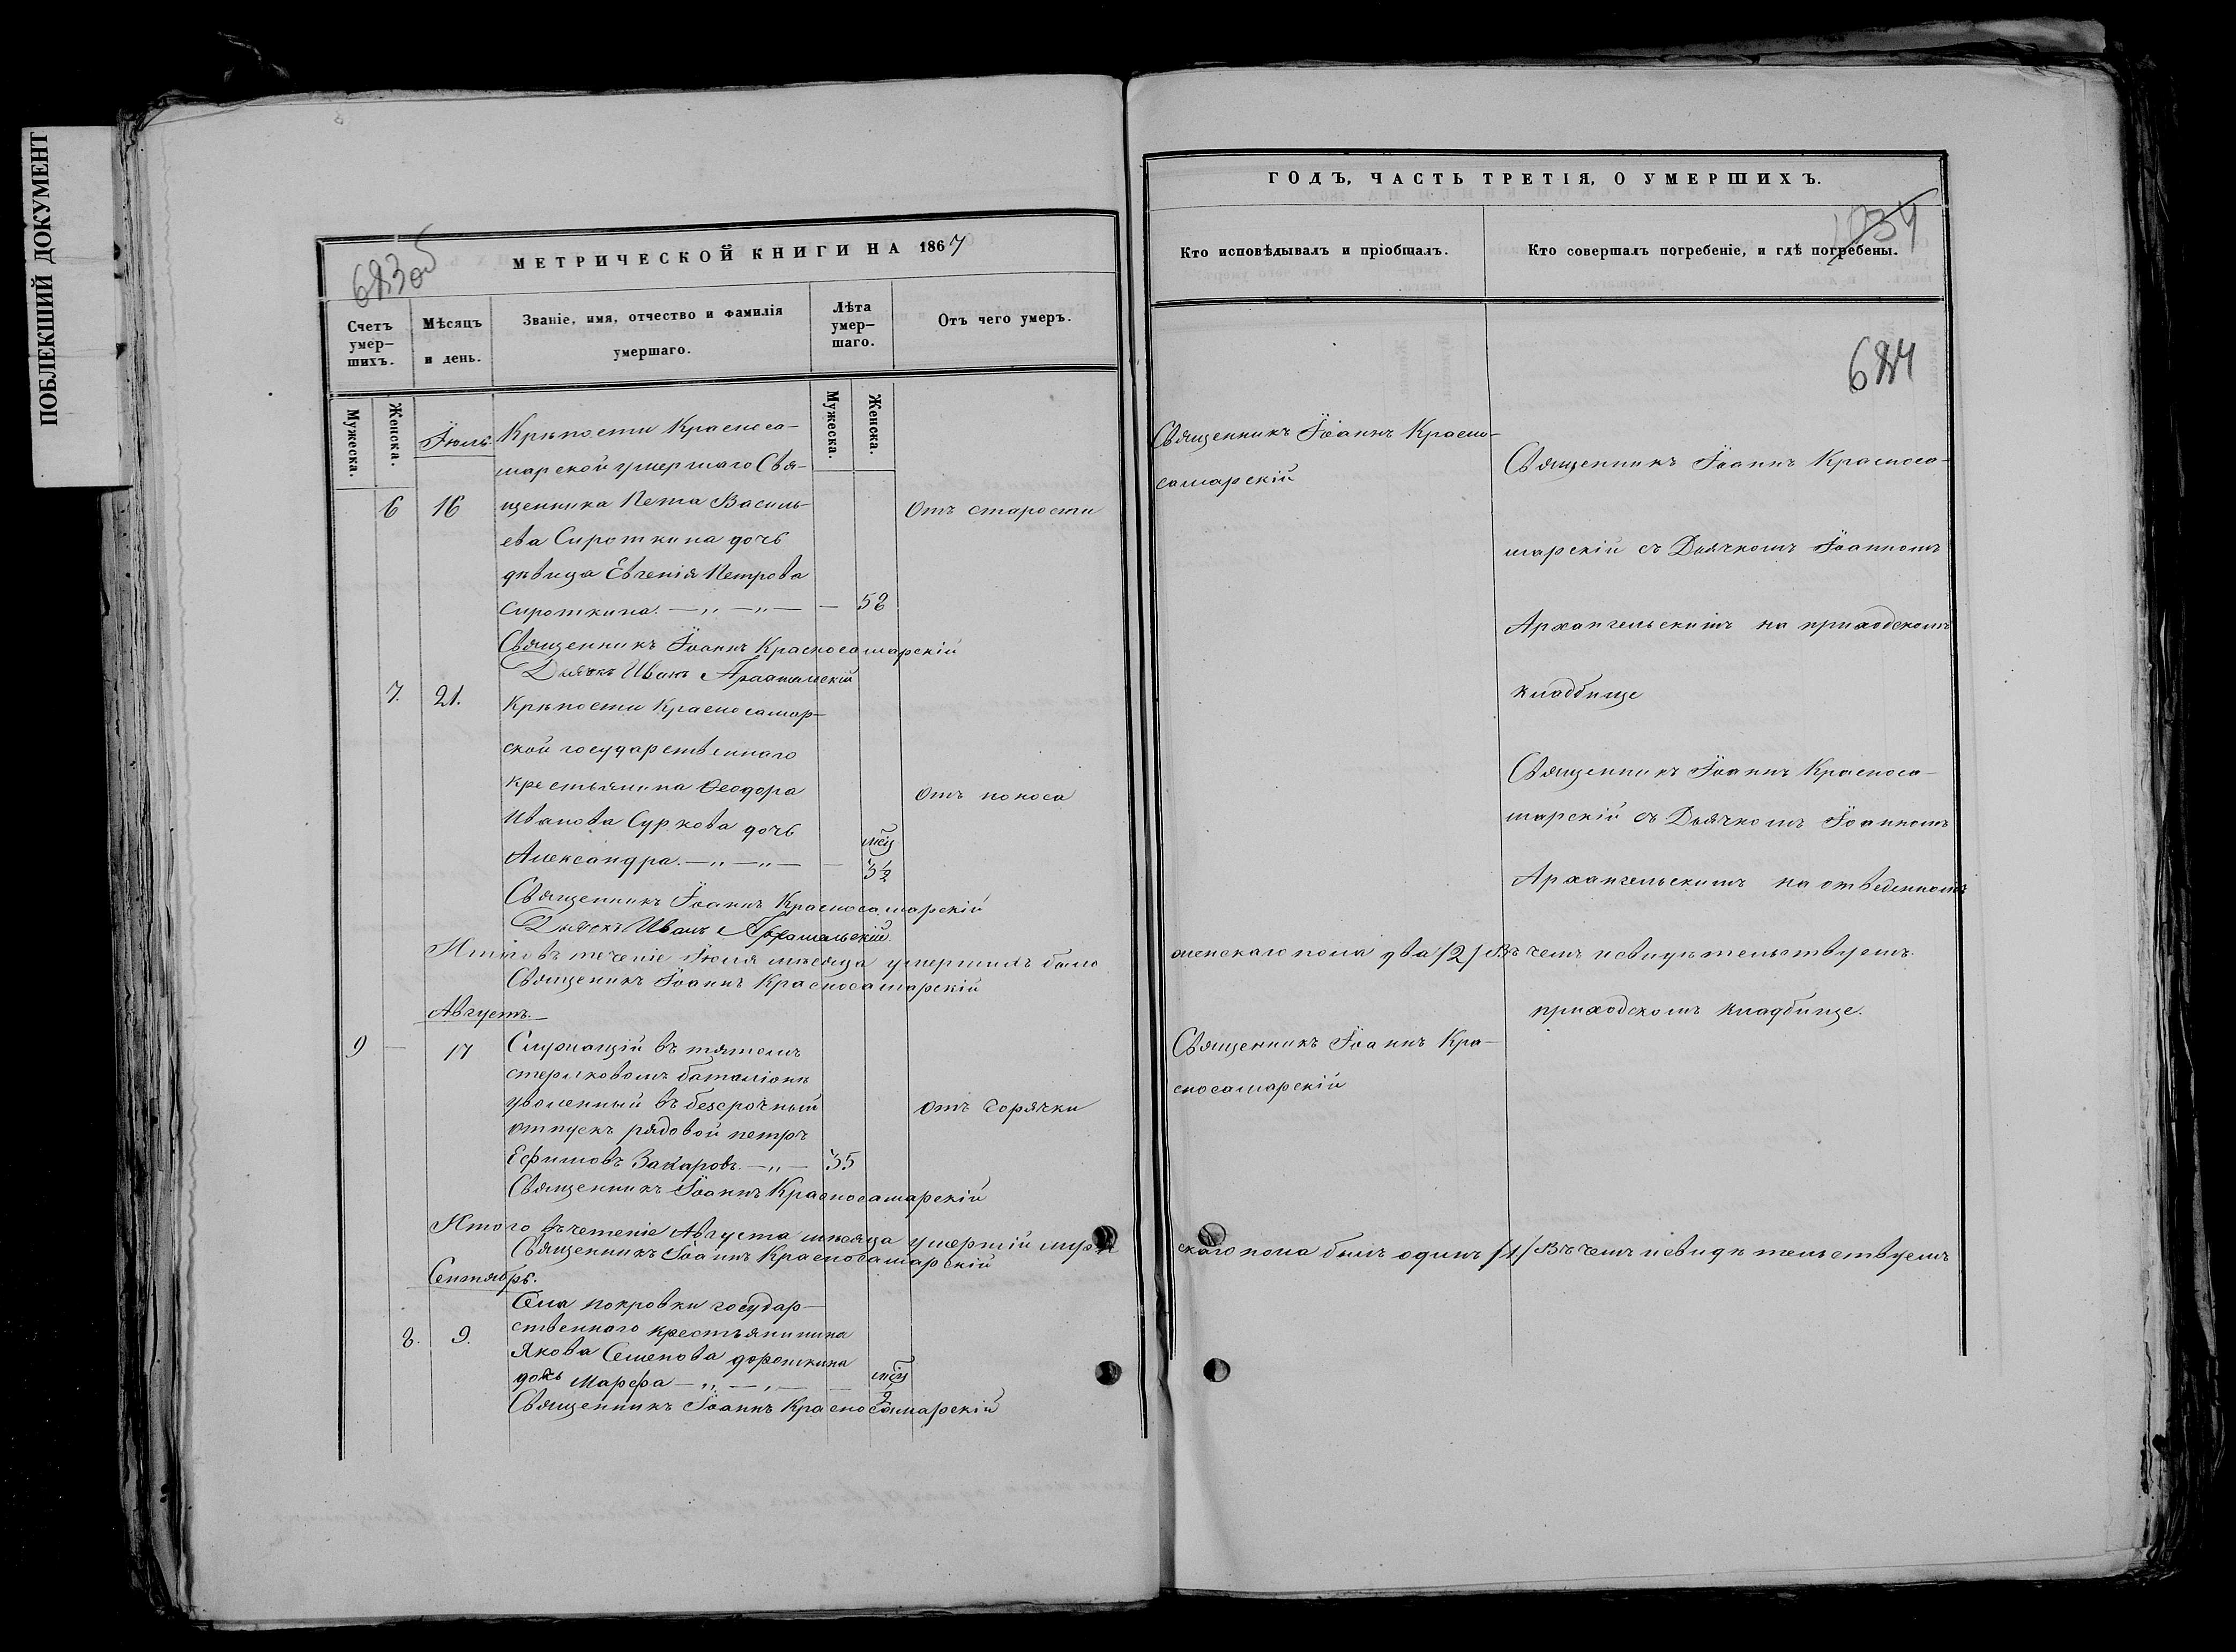 ПОБЛЕКШИЙ ДОКУМЕНТ
683 об
МЕТРИЧЕСКОЙ КНИГИ НА 1867
Счетъ умер-
шихъ.
Мѣсяцъ
и день.
Званіе, имя, отчество и фамилія
умершаго.
Лѣта
умер-
шаго.
Отъ чего умеръ.
Мужеска.
Женска.
Мужеска.
Женска.
Іюль.
Крѣпости Красноса-
марской умершаго Свя-
6 16 щенника Петра Василь- Отъ старости
ева Сироткина дочь
дѣвица Евгенія Петрова
Сироткина. —„—„— — 58
Священникъ Іоаннъ Красносамарскій
Дьячокъ Иванъ Архангельскій
7. 21. Крѣпости Красносамар-
ской государственнаго
крестьянина Ѳеодора отъ поноса
Иванова Суркова дочь мѣсц
Александра. —„—„— — 3½
Священникъ Іоаннъ Красносамарскій
Дьячокъ Иванъ Архангельскій.
Итого въ теченіе Іюля мѣсяца умершихъ было
Священникъ Іоаннъ Красносамарскій
Августъ.
9 — 17 Служащій въ пятомъ
стрелковомъ баталіонѣ
уволенный въ безсрочный отъ горячки
отпускъ рядовой петръ
Ефимовъ Захаровъ. —„— 35
Священникъ Іоаннъ Красносамарскій
Итого въ теченіе Августа мѣсяца умершій муже
Священникъ Іоаннъ Красносамарскій
Сентябрь.
Села покровки государ-
8. 9. ственного крестьянинина
Якова Семенова
дочь Марѳа —„—„— — мѣсц
9
Священникъ Іоаннъ Красносамарскій
ГОДЪ, ЧАСТЬ ТРЕТІЯ, О УМЕРШИХЪ.
1034
Кто исповѣдывалъ и пріобщалъ.
Кто совершалъ погребеніе, и гдѣ погребены.
684
Священникъ Іоаннъ Красно-
самарскій
Священникъ Іоаннъ Красноса-
марскій съ Дьячкомъ Іоанномъ
Архангельскимъ на приходскомъ
кладбище
Священникъ Іоаннъ Красноса-
марскій съ Дьячкомъ Іоанномъ
Архангельскимъ на отведенномъ
женскаго пола два /2/ Въ чемъ и свидѣтельствуемъ.
приходскомъ кладбище.
Священникъ Іоаннъ Кра-
сносамарскій
скаго пола былъ одинъ /1/ Въ чемъ и свидѣтельствуемъ